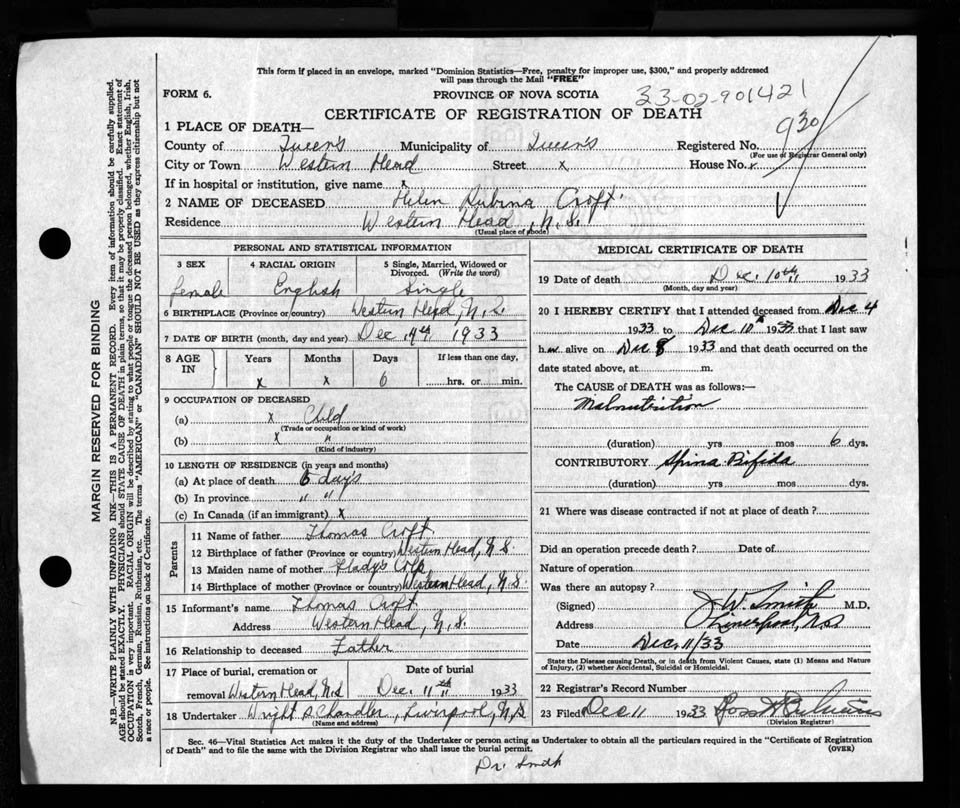 This form if placed in an envelope, marked "Dominion Statistics—Free, penalty for improper use, $300," and properly addressed
will pass through the Mail "FREE"
FORM 6.
PROVINCE OF NOVA SCOTIA
33-02-901421
CERTIFICATE OF REGISTRATION OF DEATH
1 PLACE OF DEATH—
930
County of Queen's Municipality of Queen's Registered No.
(For use of Registrar General only)
City or Town Western Head Street x House No.
If in hospital or institution, give name x
2 NAME OF DECEASED Helen Rubina Croft
Residence Western Head, N.S.
(Usual place of abode)
PERSONAL AND STATISTICAL INFORMATION
3 SEX 4 RACIAL ORIGIN 5 Single, Married, Widowed or Divorced. (Write the word)
female English Single
6 BIRTHPLACE (Province or country) Western Head, N.S.
7 DATE OF BIRTH (month, day and year) Dec 4th 1933
8 AGE IN Years Months Days If less than one day,
x x 6 hrs. or min.
9 OCCUPATION OF DECEASED
(a) x Child
(Trade or occupation or kind of work)
(b) x "
(Kind of industry)
10 LENGTH OF RESIDENCE (in years and months)
(a) At place of death 6 day's
(b) In province " "
(c) In Canada (if an immigrant) x
Parents
11 Name of father Thomas Croft
12 Birthplace of father (Province or country) Western Head, N.S.
13 Maiden name of mother Gladys Colp
14 Birthplace of mother (Province or country) Western Head, N.S.
15 Informant's name Thomas Croft
Address Western Head, N.S.
16 Relationship to deceased Father
17 Place of burial, cremation or Date of burial
removal Western Head, N.S Dec. 11th 1933
18 Undertaker Wright & Chandler, Liverpool, N.S
(Name and address)
MEDICAL CERTIFICATE OF DEATH
19 Date of death Dec. 10th 1933
(Month, day and year)
20 I HEREBY CERTIFY that I attended deceased from Dec 4
1933 to Dec 10th 1933 that I last saw
her alive on Dec 8 1933 and that death occurred on the
date stated above, at m.
The CAUSE of DEATH was as follows:—
Malnutrition
(duration) yrs mos 6 dys.
CONTRIBUTORY Spina Bifida
(duration) yrs. mos dys.
21 Where was disease contracted if not at place of death?
Did an operation precede death? Date of
Nature of operation
Was there an autopsy?
(Signed) J W. Smith M.D.
Address Liverpool, N.S
Date Dec 11/33
State the Disease causing Death, or in death from Violent Causes, state (1) Means and Nature
of Injury, (2) whether Accidental, Suicidal or Homicidal.
22 Registrar's Record Number
23 Filed Dec 11 1933
(Division Registrar)
Sec. 46—Vital Statistics Act makes it the duty of the Undertaker or person acting as Undertaker to obtain all the particulars required in the "Certificate of Registration
of Death" and to file the same with the Division Registrar who shall issue the burial permit.
(OVER)
Dr. Smith
MARGIN RESERVED FOR BINDING
N.B.—WRITE PLAINLY WITH UNFADING INK—THIS IS A PERMANENT RECORD. Every item of information should be carefully supplied.
AGE should be stated EXACTLY. PHYSICIANS should STATE CAUSE OF DEATH in plain terms, so that it may be properly classified. Exact statement of
OCCUPATION is very important. RACIAL ORIGIN will be described by stating to what people or tongue the deceased person belonged, whether English, Irish,
Scotch, French, German, Russian, Ruthenian, etc. The terms "AMERICAN" or "CANADIAN" SHOULD NOT BE USED as they express citizenship but not
a race or people. See instructions on back of Certificate.